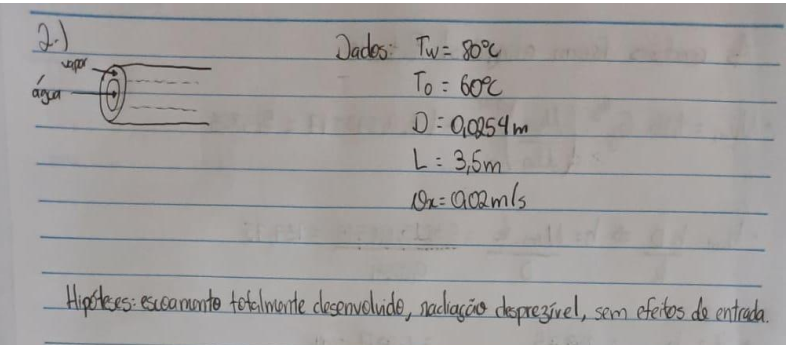 2.)
vapor
água
Dados: Tw = 80°C
T₀ = 60°C
D = 0,0254m
L = 3,5m
vx = 0,02m/s
Hipóteses: escoamento totalmente desenvolvido, radiação desprezível, sem efeitos de entrada.